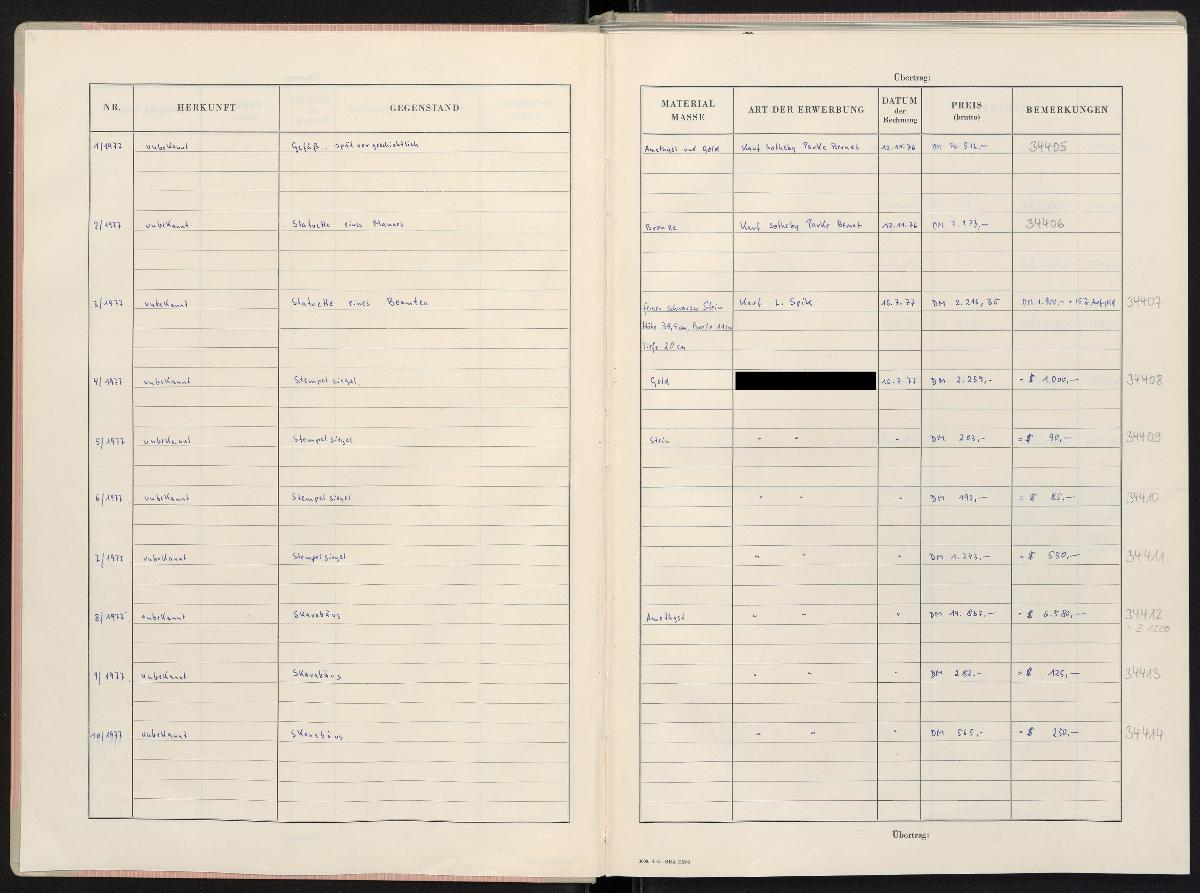 NR. HERKUNFT GEGENSTAND
1/1977 unbekannt Gefäß, spätvorgeschichtlich
2/1977 unbekannt Statuette eines Mannes
3/1977 unbekannt Statuette eines Beamten
4/1977 unbekannt Stempelsiegel
5/1977 unbekannt Stempelsiegel
6/1977 unbekannt Stempelsiegel
7/1977 unbekannt Stempelsiegel
8/1977 unbekannt Skarabäus
9/1977 unbekannt Skarabäus
10/1977 unbekannt Skarabäus
Übertrag:
MATERIAL MASSE ART DER ERWERBUNG DATUM der Rechnung PREIS (brutto) BEMERKUNGEN
Amethyst und Gold Kauf Sotheby Parke Bernet 12.11.76 DM 512,- 34405
Bronze Kauf Sotheby Parke Bernet 12.11.76 DM 7.173,- 34406
feiner schwarzer Stein Kauf L. Spik 15.7.77 DM 2.216,35 DM 1.900,- + 15% Aufgeld 34407
Höhe 39,5 cm, Breite 11 cm
Tiefe 20 cm
Gold 12.7.77 DM 2.259,- = $ 1.000,- 34408
Stein " " " DM 203,- = $ 90,- 34409
" " " DM 192,- = $ 85,- 34410
" " " DM 1.243,- = $ 550,- 34411
Amethyst " " " DM 14.867,- = $ 6.580,- 34412
" " " DM 282,- = $ 125,- 34413
" " " DM 565,- = $ 250,- 34414
Übertrag: